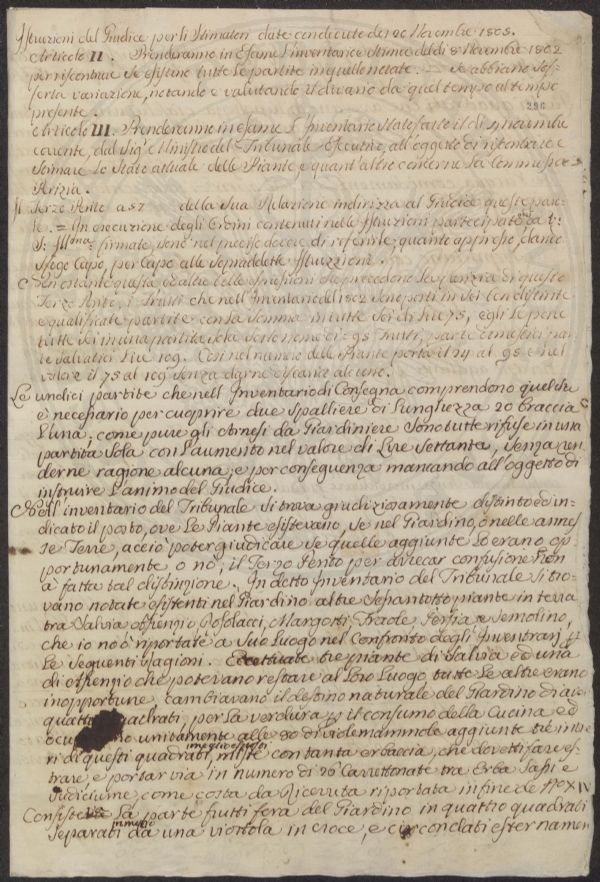 Istruzioni del Giudice per li Stimatori date con decreto de 20 Novembre 1805.
Articolo II. Prenderanno in Esame l'inventario e Stima del dì 8 Novembre 1802
per riscontrare se esistino tutte le partite in quello notate. = Se abbiano Sof-
ferta variazione, notando e valutando il divario da quel tempo al tempo
presente.
296
Articolo III. Prenderanno in esame l'Inventario Stato fatto il dì 9 Novembre
corrente, dal Sig.e Ministro del Tribunale Esecutivo, all'oggetto di riscontrare e
Stimare lo Stato attuale delle Piante e quant'altro concerne la Commissio-
Perizia.
Il Terzo Perito a 57 della Sua Relazione indirizza al Giudice queste paro-
le. = In esecuzione degli Ordini contenuti nelle Istruzioni partecipate da V:
S: Ill.ma firmate, sono nel preciso dovere di riferirle quanto appresso, dando
Sfogo Capo, per Capo alle Sopraddette Istruzzioni.
Non ostante questa ed altre che precedono la perizia di questo
Terzo Perito, i Frutti che nell'Inventario del 1802 sono posti in Sei ben distinte
e qualificate partite con la Somma in tutte Sei di Lire 75, egli le pone
tutte Sei in una partita sola Sotto nome di 95 Frutti, parte domestici par-
te Salvatici Lire 109. Così nel numero delle Piante porta il 74 al 95 e nel
valore il 75 al 109 senza darne discarico alcuno.
Le undici partite che nell'Inventario di Consegna comprendono quel che
è necessario per cuoprire due Spalliere di Lunghezza 20 braccia
l'una, come pure gli Arnesi da Giardiniere Sono tutte rifuse in una
partita Sola con l'aumento nel valore di Lire Settanta, Senza ren-
derne ragione alcuna, e per conseguenza mancando all'oggetto di
instruire l'animo del Giudice.
Nell'inventario del Tribunale Si trova giudiziosamente distinto ed in-
dicato il posto, ove le Piante esistevano, se nel Giardino, o nelle annes-
se Terre, acciò poter giudicare Se quelle aggiunte lo erano op-
portunamente o nò; il Terzo Perito per arrecar confusione Non
à fatta tal distinzione. In detto Inventario del Tribunale Si tro-
vano notate esistenti nel Giardino altre Sessantotto piante in terra
tra Salvia Assenzio Rosolacci, Margotti, Fragole, Persia e Semolino,
che io no ò riportate a Suo Luogo nel Confronto degli Inventari p
le Seguenti ragioni. Eccettuate tre piante di Salvia ed una
di Assenzio che potevano restare al Loro Luogo, tutte le altre erano
inopportune, cambiavano il destino naturale del Giardino di aver
quattro quadrati, per la verdura p il consumo della Cucina ed
unitamente alle 20 di videmammole aggiunte tre inte-
ri di questi quadrati, miste con tanta erbaccia, che dovetti fare es-
trare, e portar via in numero di 26 Carrettonate tra Erba Sassi e
Sudiciume, come costa da Ricevuta riportata in fine de N.o XIV
Consistendo la parte frutti fera del Giardino in quattro quadrati
Separati da una viottola in croce, e circondati esternamen